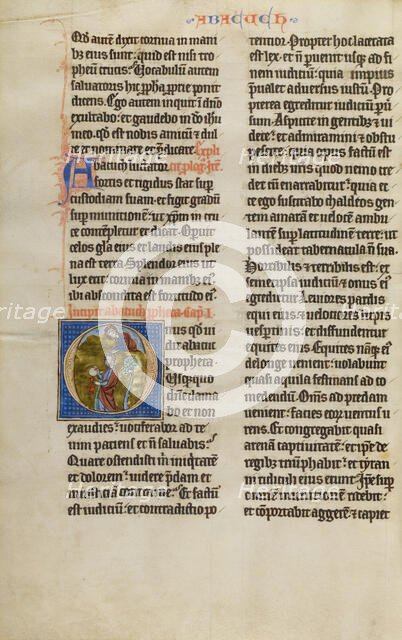 ABACUCH
Q̄d autem dixit cornua in mani
bꝫ eius sunt: quid est nisi tro
pheum crucis. Vocabulū autem
saluatoris hic, ꝓpħa ꝑpie ponit
dicens. Ego autem inquit ī dn̄o
exultabo: et gaudebo in do ihu
meo. qd̓ est nobis amicū et dulce
re et nominare et p̄dicare. Expli
Abacuch luctator cit plog. Inc̄.
fortis et rigidus stat sup
custodiam suam et figit gradū
sup munitionē: ut xp̄m in cru
ce contempletur et dicat. Opuit
celos gl̓a eius et laudis eius ple
na est terra. Splendor eius ut
lux erit: cornua in manibꝫ ei̓
ibi abscondita est fortitudo ei̓
Incipit abacuch ꝓpheta. Cap̄. I.
Onus qd̓ ui
dit abacuc
propheta.
Usqꝫquo
dn̄e clama
bo et non
exaudies: uociferabor ad te
uim paciens et n̄ saluabis:
Quare ostendisti m̄ iniqͥtatem
et dolorem: uidere p̄dam et
iniusticiā contra me: Et factū
est iudiciū: et contradictio po
tentior. Propter hoc lacerata
est lex: et n̄ peruenit usqꝫ ad fi
nem iudiciū: quia impius
p̄ualet aduersus iustū: Pro
pterea egreditur iudiciū per
sum. Aspicite in gentibꝫ et ui
dete: et admiramini et obstu
pescite: quia opus factū est
in diebꝫ ur̄is quod nemo cre
det cū enarrabitur: quia ec
ce ego suscitabo chaldeos gen
tem amarā et uelocē ambu
lantem sup latitudinē terre: ut
possideat tabernacula n̄ sua.
Horribilis et terribilis est: ex
semetipsa iudiciū et onus ei̓
egredietur. Leuiores pardis
equi eius: et uelociores lupis
uesptinis: et diffundentur
equites eius. Equites nāqꝫ ei̓
de longe uenient: uolabunt
quasi aquila festinans ad co
medendū. Om̄s ad predam
uenient: facies eoꝝ uentus u
rens. Et congregabit quasi
arenā captiuitatē: et ip̄e de
regibꝫ triūphabit: et tyran
ni ridiculi eius erunt. Ip̄e sup
omnē munitionē ridebit:
et cōportabit aggerē et capiet